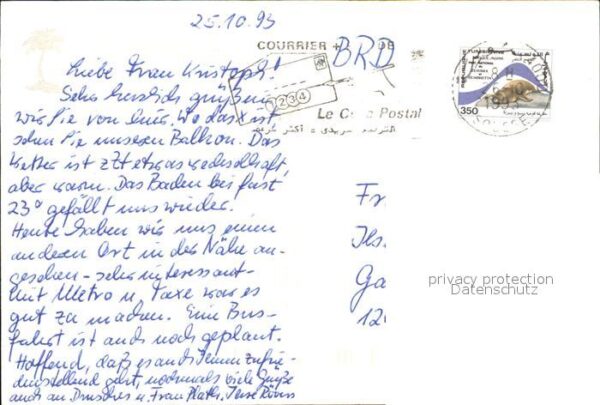 25.10.93
COURRIER + DE
BRD
Liebe Frau Kristoph!
Sehr herzlich grüßen
wir Sie von hier. Wo das x ist
sehen Sie unseren Balkon. Das
Wetter ist zZt etwas wechselhaft,
aber warm. Das Baden bei fast
23° gefällt uns wieder.
Heute haben wir uns einen
anderen Ort in der Nähe an-
gesehen - sehr interessant-
Mit Metro u. Taxe war es
gut zu machen. Eine Bus-
fahrt ist auch noch geplant.
Hoffend, daß es auch Ihnen zufrie-
denstellend geht, nochmals viele Grüße
auch an u. Frau Ihre
1234
Le Postal
350
Fr
Ils.
Ga
12
privacy protection
Datenschutz